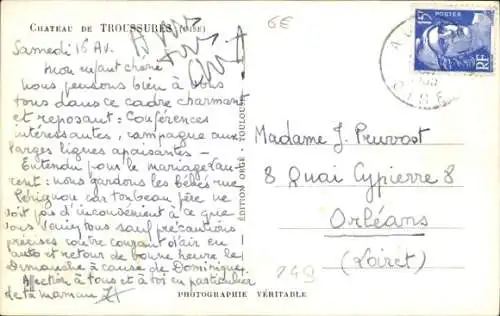 CHATEAU DE TROUSSURES (OISE)
6E
Samedi 16 Av.
mon enfant chérie
nous pensons bien à vous
tous dans ce cadre charmant
et reposant : Conférences
intéressantes, campagne aux
larges lignes apaisantes -
Entendu pour le mariage Lau-
rent : nous gardons les bébés rue
Pérignon car ton beau père ne
voit pas d'inconvénient à ce que
vous veniez tous sauf précautions
précises contre courant d'air en
auto et retour de bonne heure le
Dimanche à cause de Dominique.
Affection à tous et à toi en particulier
de ta maman
ÉDITION ORGÉ - TOULOUSE
15F
POSTES
RF
OISE
Madame J. Pruvost
8 Quai Cypierre 8
Orléans
(Loiret)
249
PHOTOGRAPHIE VÉRITABLE